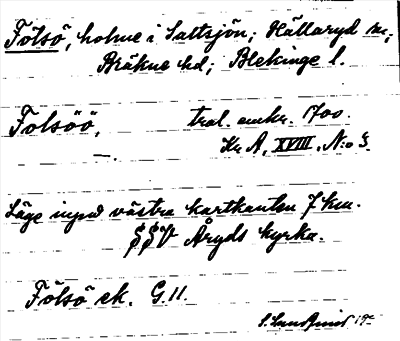 Fölsö, holme i Saltsjön; Hällaryd sn;
Bräkne hd; Blekinge l.
Folsöö, tral. omkr. 1700.
Kr A, XVIII, N:o 3.
Läge invid västra kartkanten 7 km.
SSV Åryds kyrka.
Fölsö ek. G 11.